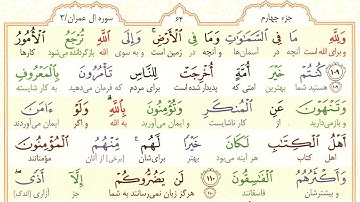 جزء چهارم ۶۴ سوره آل عمران/۳
وَلِلَّهِ مَا فِي السَّمَٰوَٰتِ وَمَا فِي الْأَرْضِ وَإِلَى اللَّهِ تُرْجَعُ الْأُمُورُ
و برای الله است آنچه در آسمان‌ها و آنچه در زمین است و به سوی الله بازگردانده می‌شود کارها
۱۰۹ كُنتُمْ خَيْرَ أُمَّةٍ أُخْرِجَتْ لِلنَّاسِ تَأْمُرُونَ بِالْمَعْرُوفِ
هستید شما بهترین امتی که پدیدار شده است برای مردم که فرمان می‌دهید به کار شایسته
وَتَنْهَوْنَ عَنِ الْمُنكَرِ وَتُؤْمِنُونَ بِاللَّهِ وَلَوْ ءَامَنَ
و بازمی‌دارید از کار ناشایست و ایمان می‌آورید به الله و اگر ایمان می‌آوردند
أَهْلُ الْكِتَٰبِ لَكَانَ خَيْرًا لَهُم مِّنْهُمُ الْمُؤْمِنُونَ
اهل کتاب هر آینه می‌بود بهتر برای‌شان (برخی) از آنان مؤمنانند
وَأَكْثَرُهُمُ الْفَٰسِقُونَ ۱۱۰ لَن يَضُرُّوكُمْ إِلَّا أَذًى
و بیشترشان فاسقانند هرگز زیان نمی‌رسانند به شما جز آزاری (اندک)